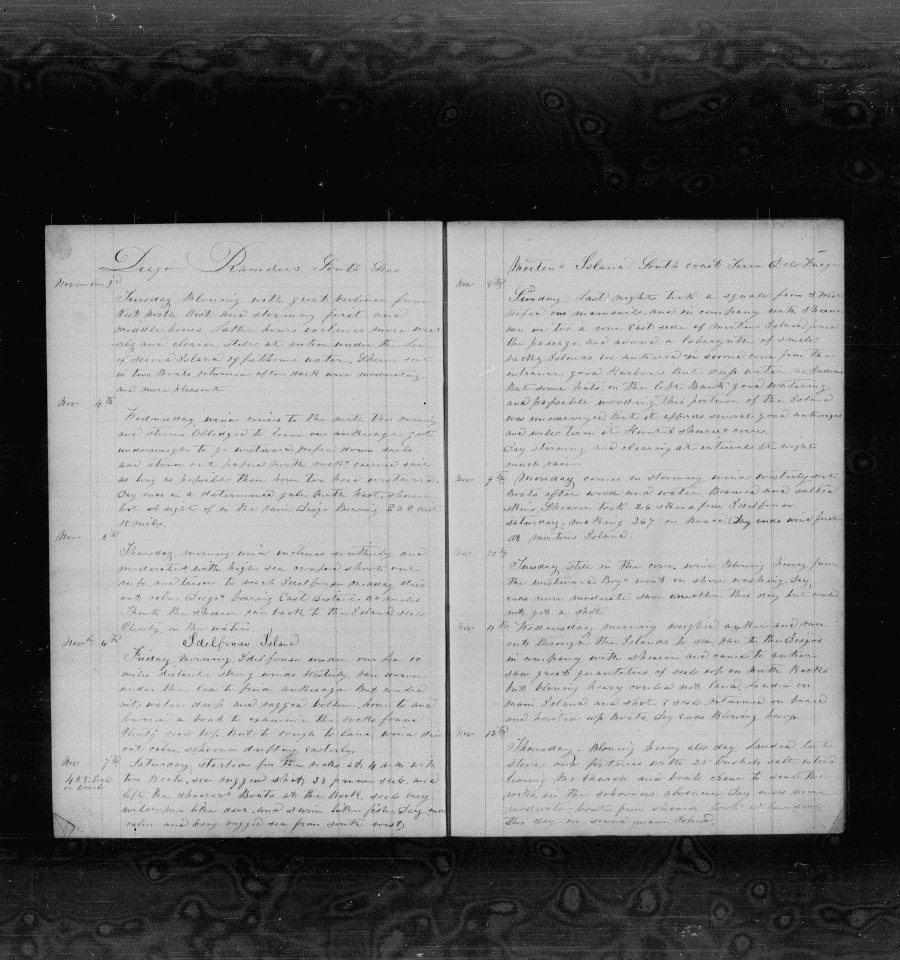 Diego Rameries South Seas
November 3rd
Tuesday Blowing with great violence from
West North West and storming first and
middle hours. Latter hours inclines more west
erly and clearer still at anchor under the Lee
of second Island 19 fathoms water. Shearer sent
in two Boats returned after dark wind moderating
and more pleasant
Nov 4th
Wednesday wind comes to the north this morning
and storms Obliged to leave our anchorage got
underweight to go westward down sails
and stood out passed North rocks carried sail
as long as possible then hove two head westward.
Day ends in a determined gale North West, shearer
lost sight of in the rain Diego Bearing E N E dist
18 miles.
Nov. 5th
Thursday morning wind inclines southerly and
moderates with high sea out
reefs and tried to reach Idelfonso midday died
out calm. Diegos bearing East Distant 20 miles
Think the shearer ran back to the Island seals
Plenty in the water
Novb 6th Idelfonso Island
Friday morning Idelfonso under our lee 10
miles distance Strong winds Westerly ran down
under the Lea to find anchorage But could
not, water deep and rugged bottom, hove to and
lowered a boat to examine the rocks found
Plenty seals up, But to rough to land wind died
out calm, schooner drifting easterly.
Nov 7th Saturday, started for the rocks at 4 a.m with
two Boats, sea rugged shot 38 prime seals, and
left the shearers Boats at the Rock. seals very
wild, like deer, and swim like fish, Day ends
calm and Heavy rugged sea from south west
on Board
Mortons Island South coast Terra Delo Fuego
Nov 8th
Sunday last night took a squall from S West
our mainsails, and in company with Shearer
ran in two a cove East side of Mortons Island found
the passage, and around a labyrinth of small
rocky Islands we anchored in second cove from the
entrance good Harbour But deep water no Indians
But some huts, on the left Bank good watering
and passable wooding this portion of the Island
was unsurveyed But it affords several good anchorages
and will term it Hunt & Shearers cove
Day storming and clearing at intervals at night
much rain
Nov 9th Monday, comes in stormy wind westerly sent
Boats after wood and water Beamed and salted
skins, Shearer took 26 skins from Idelfonso
saturday, making 367 on Board. Day ends wind fresh
at Mortons Island.
Nov 10th
Tuesday, still in the cove wind blowing heavy from
the westward Boys went on shore washing Day
ends more moderate saw another this day but could
not get a shot
Nov 11th Wednesday morning weighed anchor and ran
out through the Islands to sea ran to the Diegos
in company with shearer and came to anchor
saw great quantities of seals up on North Rocks
but blowing heavy could not land, landed on
main Island and shot 8 seals returned on board
and hoisted up Boats Day ends Blowing heavy
Nov 12th
Thursday. Blowing heavy also day. landed
stove and fixtures with 25 bushels salt
leaving Mr Church and boats crew to seal the
rocks in the schooners absence Day ends more
moderate boat from shearer took
this day on second main Island.